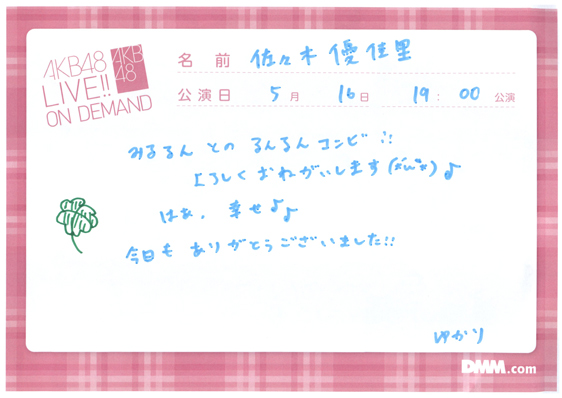 AKB48
LIVE!!
ON DEMAND
AKB
48
名 前 佐々木 優佳里
公演日 5月 16日 19:00 公演
みるるん との るんるん コンビ!!
よろしく おねがいします(*´ω`*)♪
はぁ、幸せ♪♪
今日も ありがとうございました!!
ゆかり
DMM.com